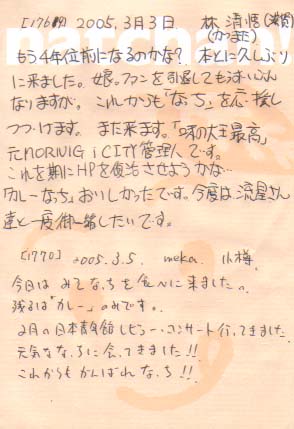 natchan
[1769] 2005.3月3日 林 清悟
(かつまた)
もう4年位前になるのかな? 本とに久しぶり
に来ました。娘。ファンを引退してもすいぶん
なりますが。これからも「なっち」を応援し
つづけます。また来ます。「味の大王最高」
元MORNIG i CITY管理人です。
これを期にHPを復活させようかな…
「カレーなっち。おいしかったです。今度は、流星さん
達と一度御一緒したいです。
[1770] 2005.3.5. meka. 小樽
今日は みそなっちを食べに来ました。
残るは「カレー」のみです。
2月の日本青年館しピュー・コンサート行ってきました。
元気ななっちに会ってきました!!
これからもがんばれなっち!!